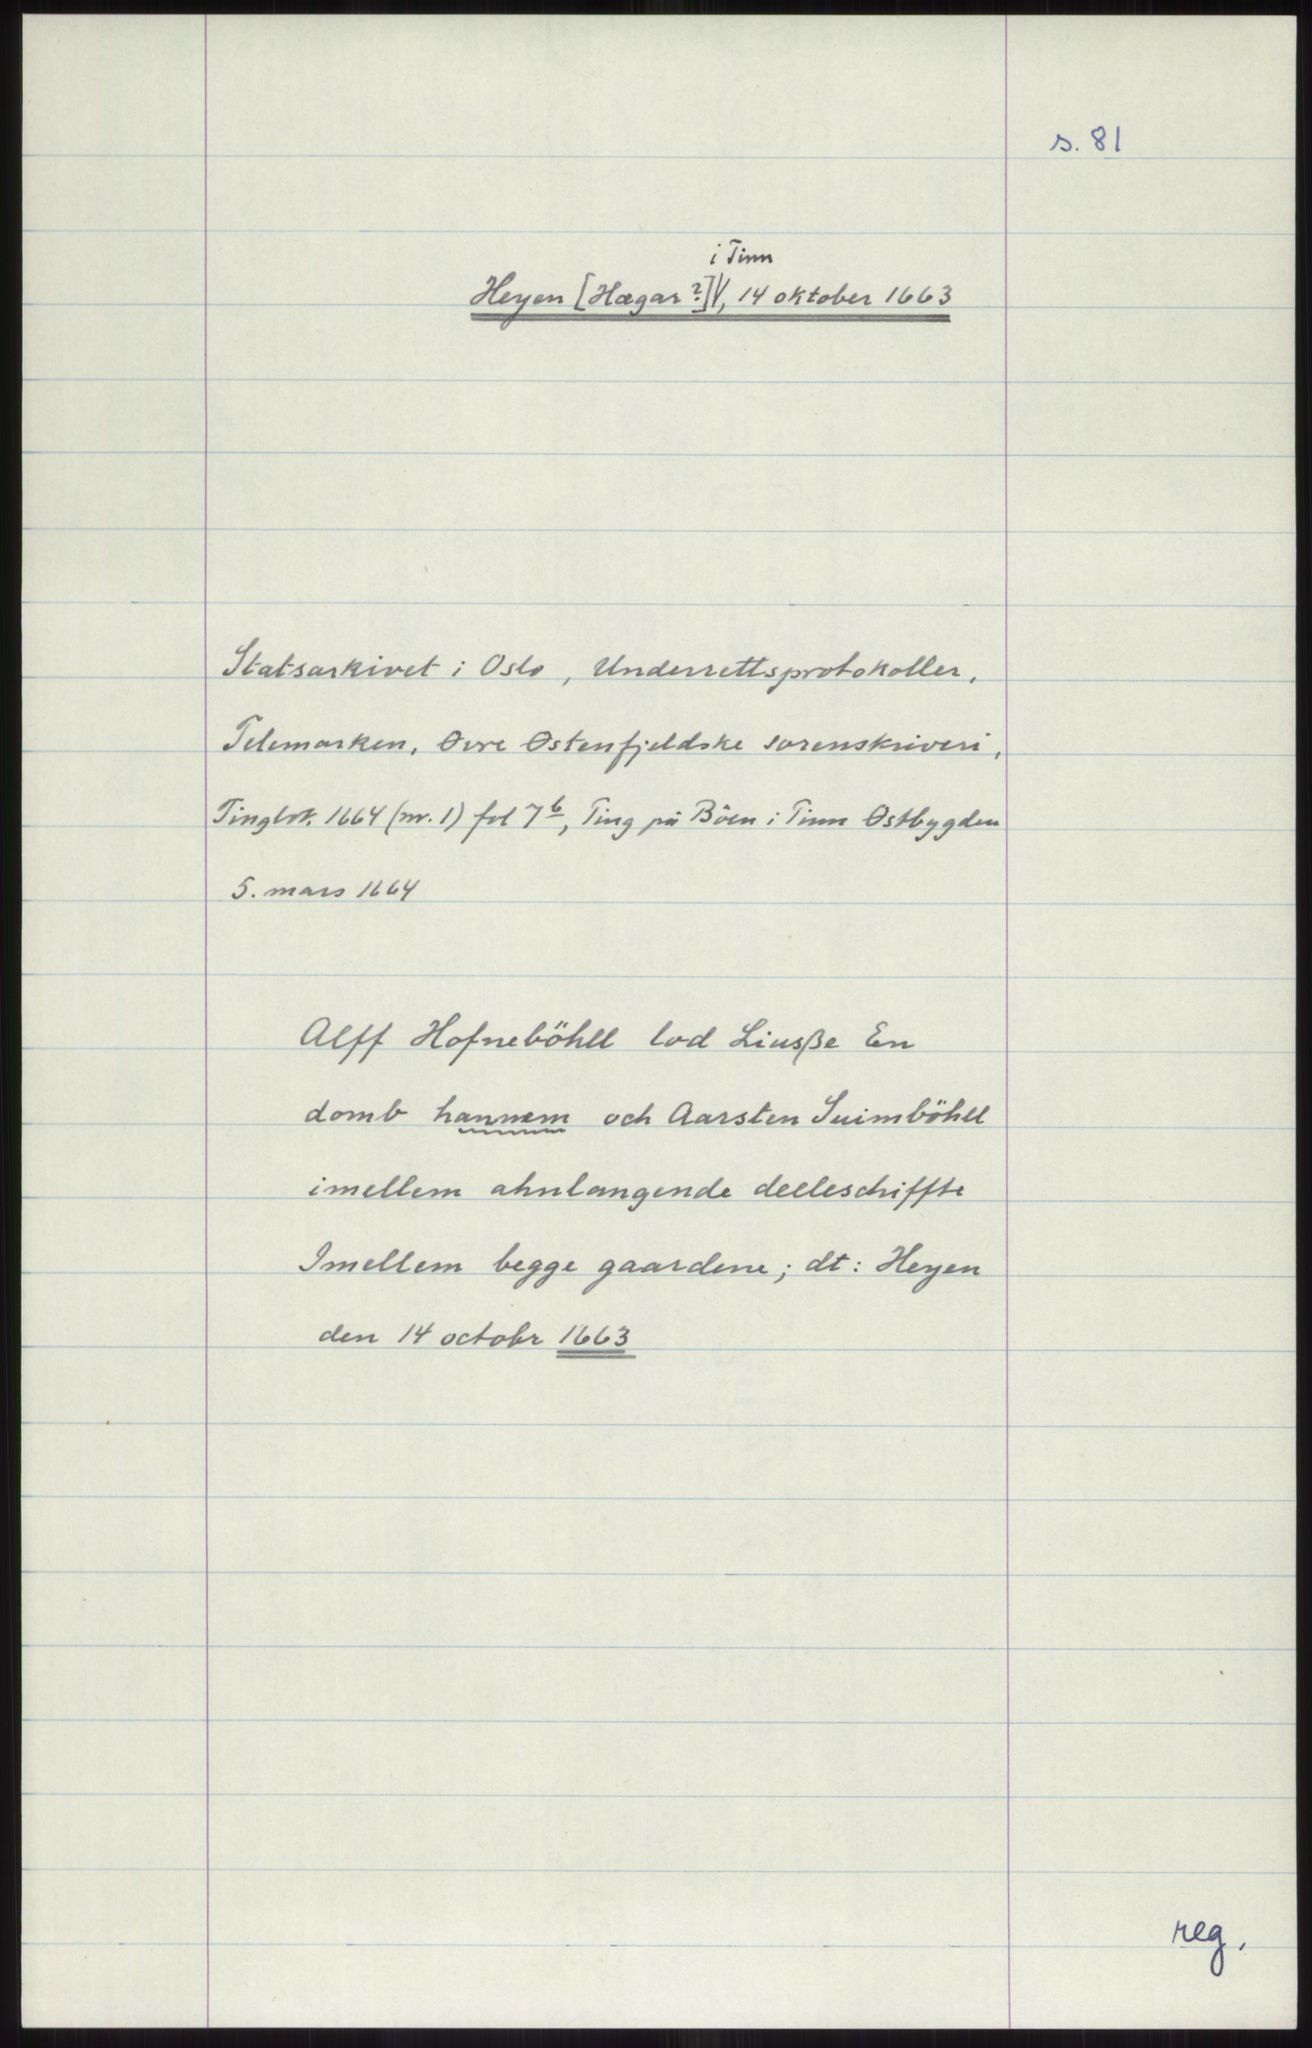 s. 81
i Tinn
Heyen [Hægar?], 14 oktober 1663
Statsarkivet i Oslo, Underrettsprotokoller,
Telemarken, Øvre Østenfjeldske sorenskriveri,
Tingbok. 1664 (nr. 1) fol 7b, Ting på Böen i Tinn Østbygden
5. mars 1664
Alff Hofneböhll lod Liusße En
domb hannem och Aarsten Suimböhll
imellem ahnlangende deeleschiffte
Imellem begge gaardene; dt: Heyen
den 14 octobr 1663
reg.